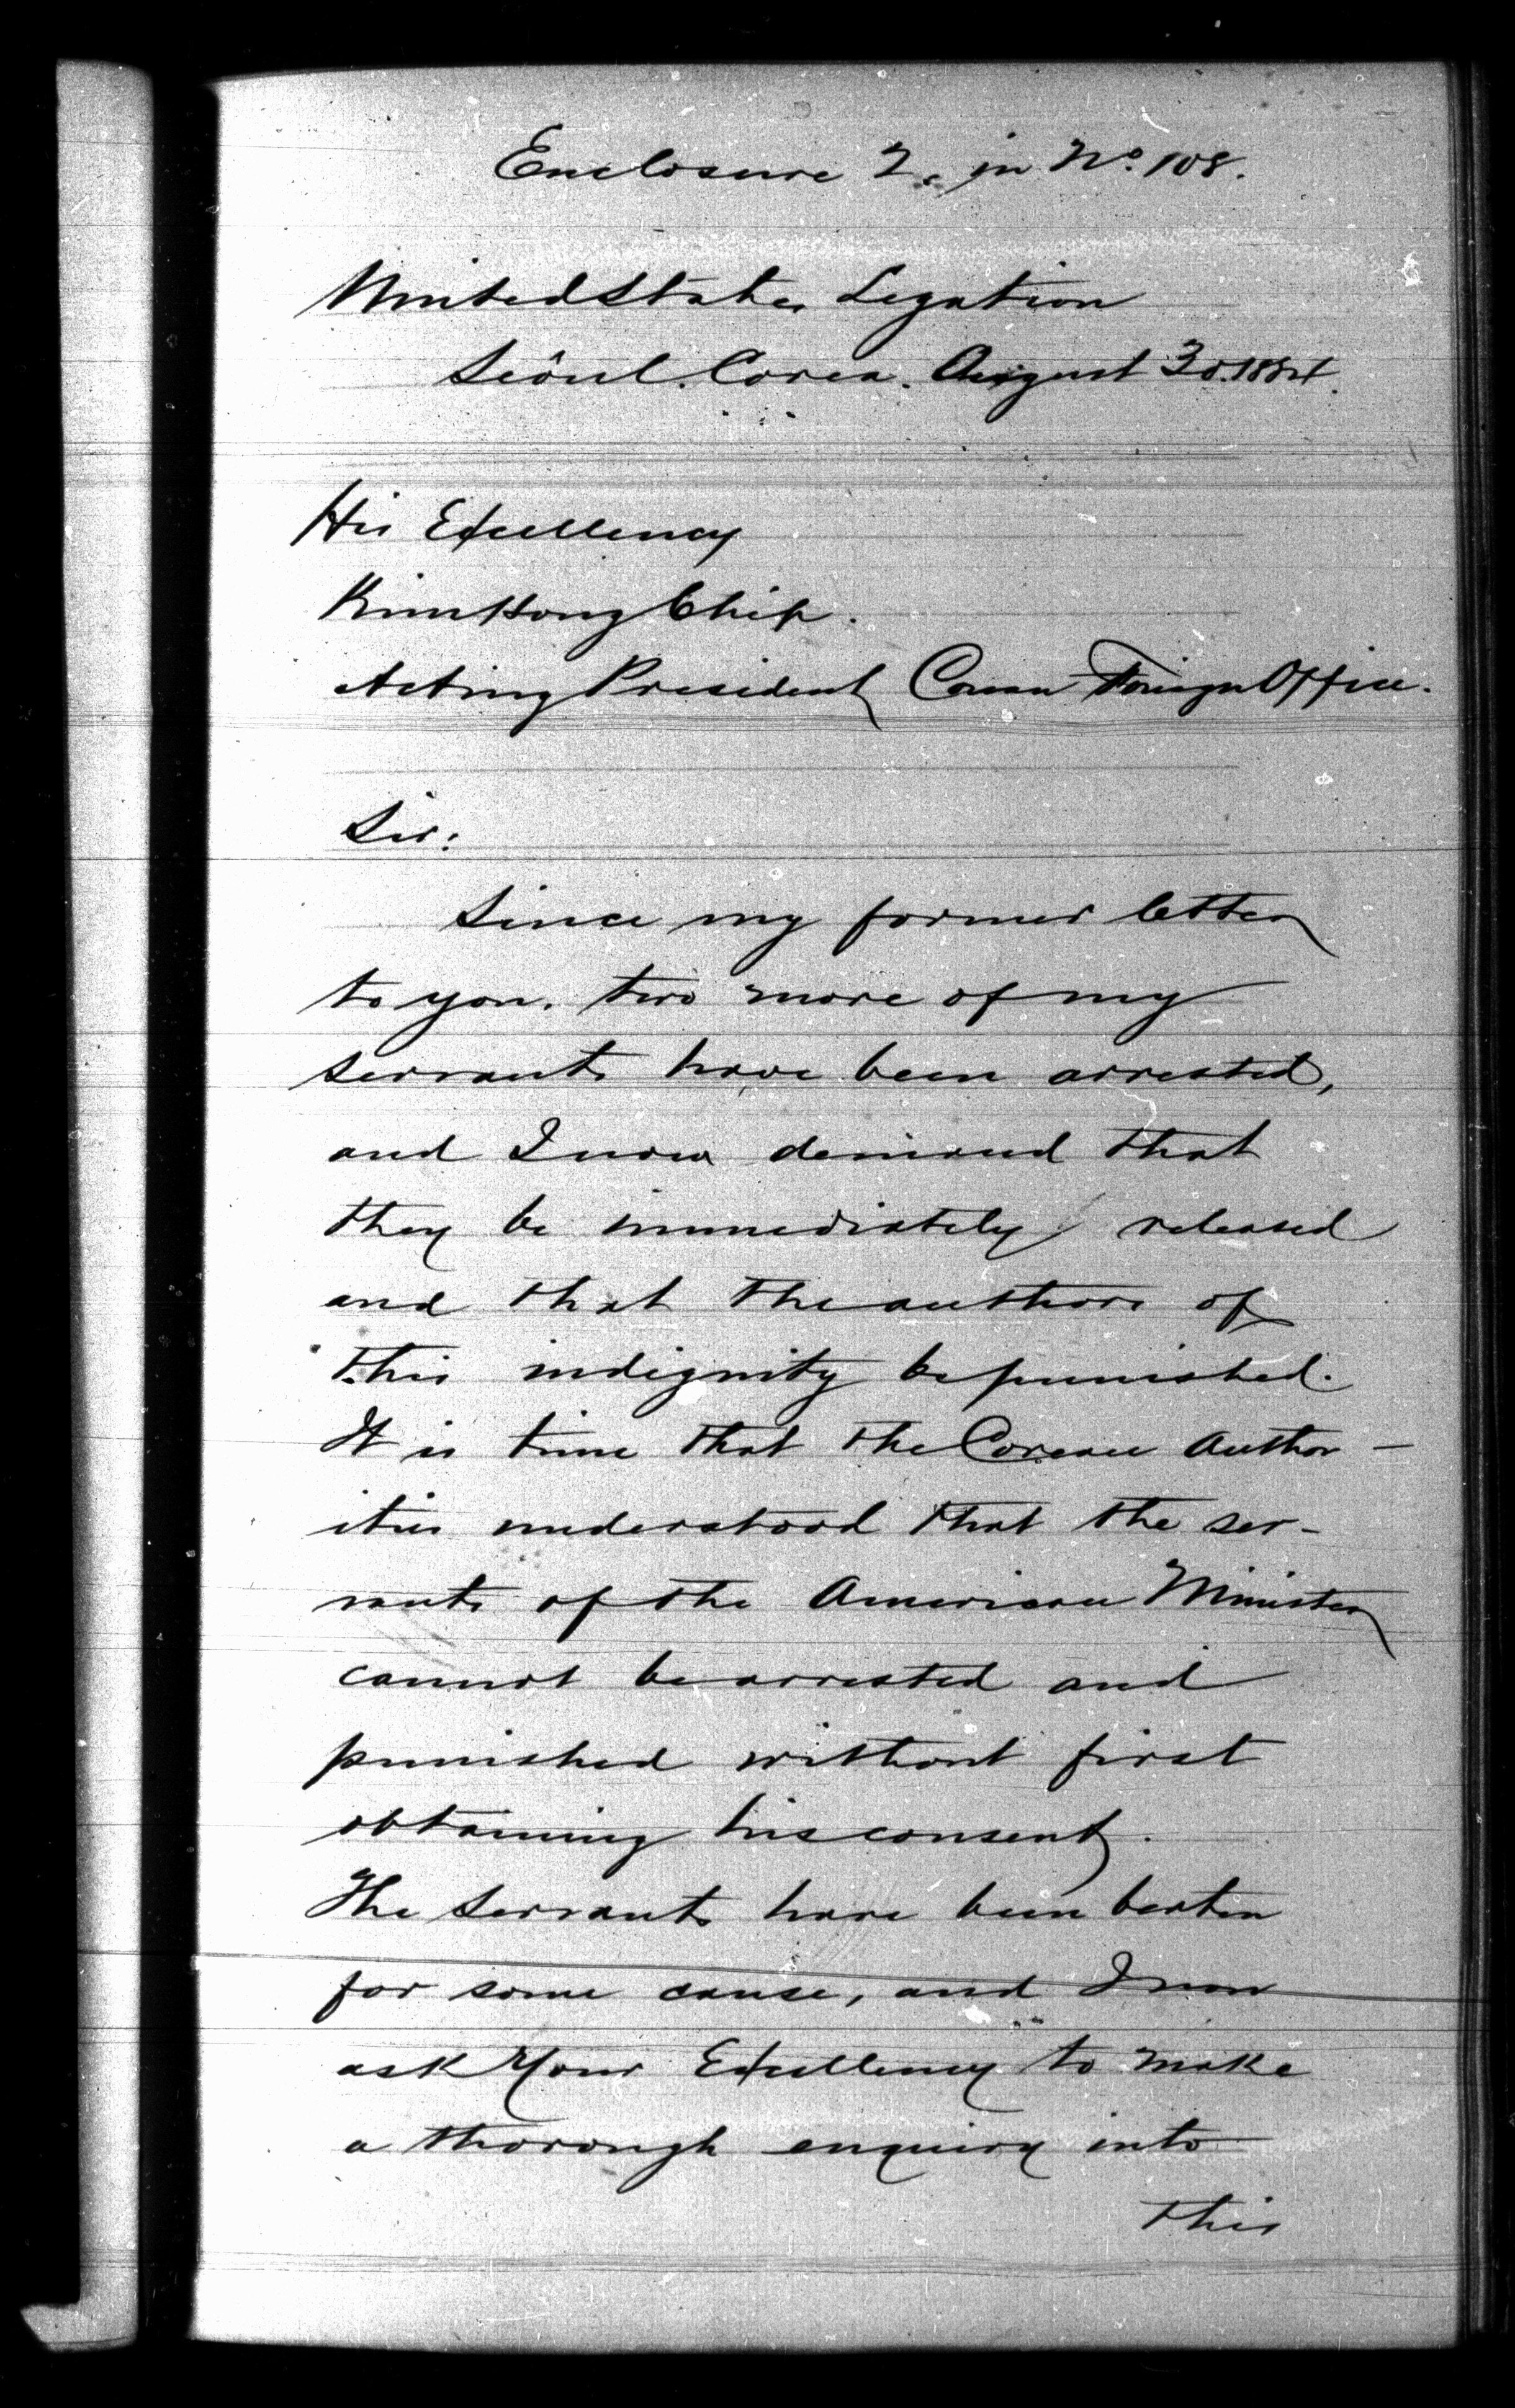 Enclosure 2. in No. 108.
United States Legation
Seöul. Corea. August 30. 1884.
His Excellency
Kim Hong Chip.
Acting President Corean Foreign Office.
Sir:
Since my former letter
to you, two more of my
servants have been arrested,
and I now demand that
they be immediately released
and that the authors of
this indignity be punished.
It is time that the Corean Author-
ities understood that the ser-
vants of the American Minister
cannot be arrested and
punished without first
obtaining his consent.
The servants have been beaten
for some cause, and I now
ask Your Excellency to make
a thorough enquiry into
this